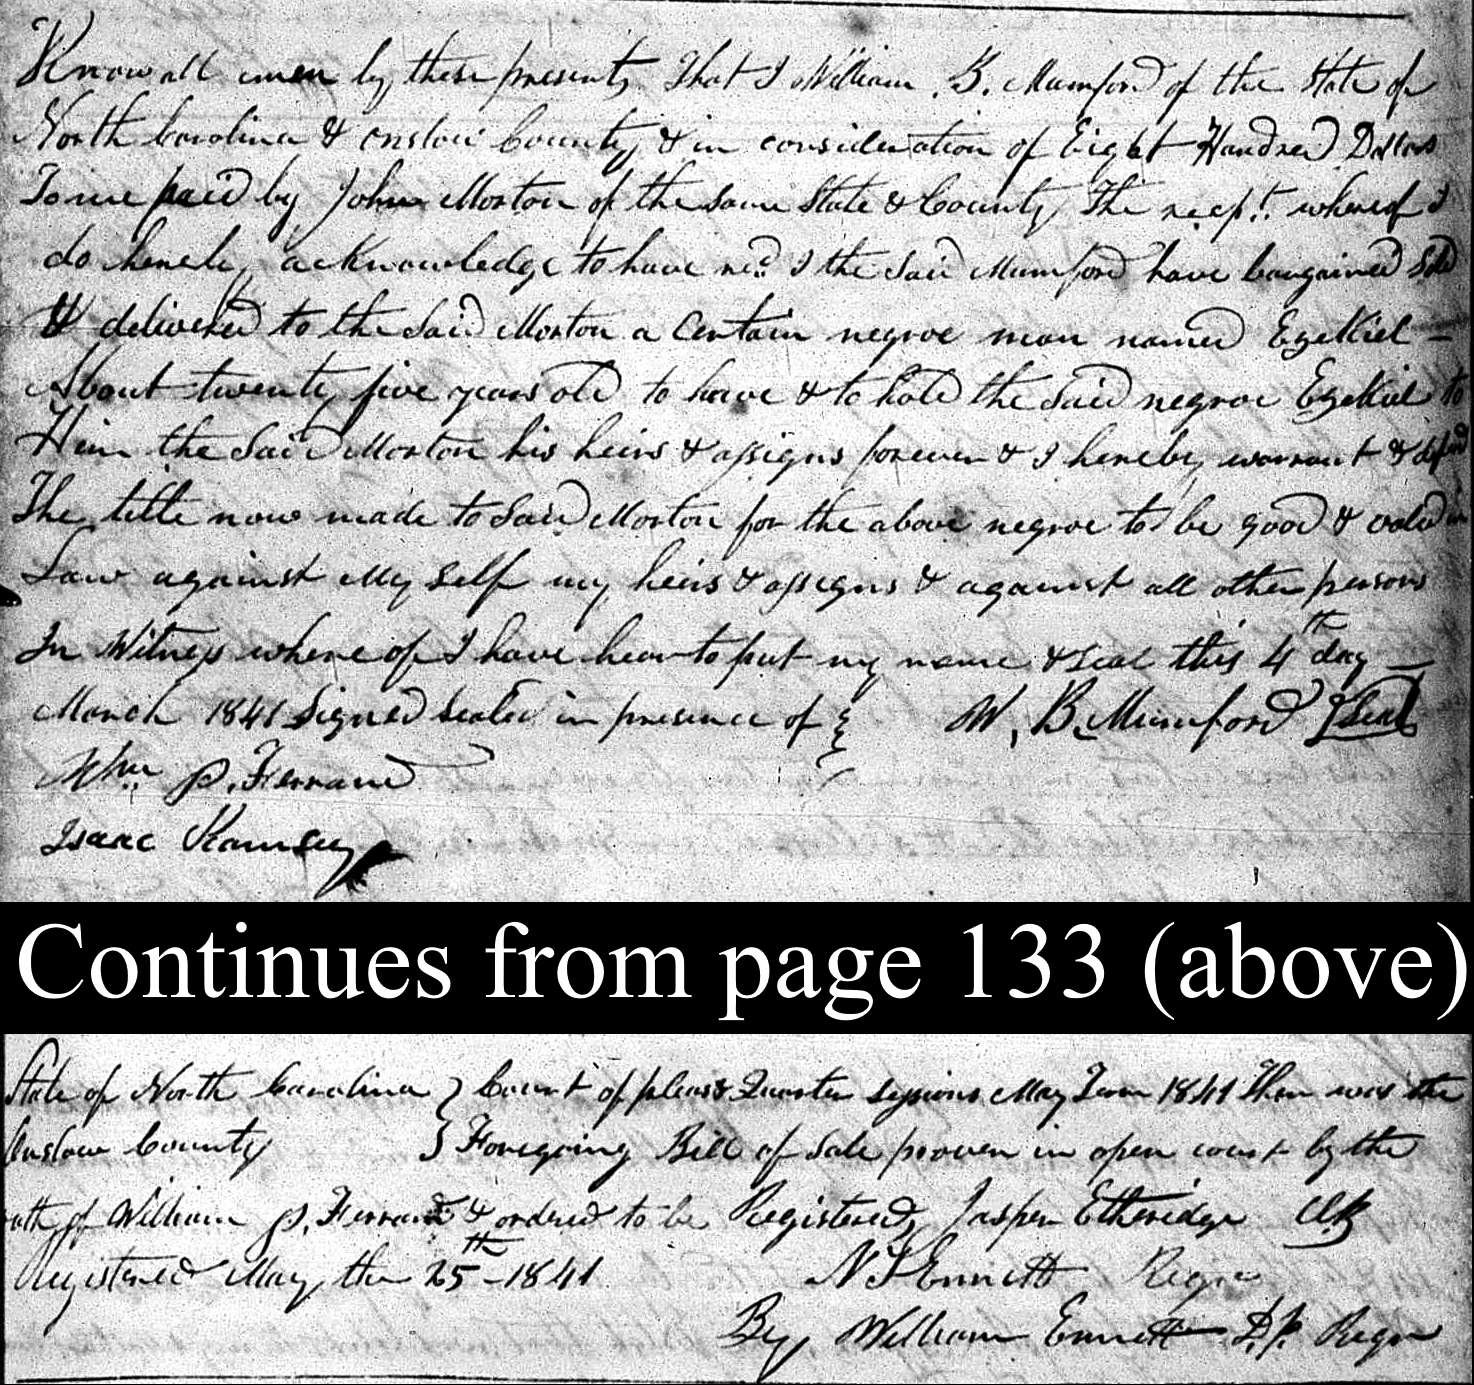 Know all men by these presents That I William B. Mumford of the State of
North Carolina & Onslow County & in consideration of Eight Hundred Dollars
To me paid by John Morton of the same State & County The recpt. whereof I
do hereby acknowledge to have recd. I the Said Mumford have bargained Sold
& delivered to the Said Morton a Certain negroe man named Ezekiel –
About twenty five years old to have & to hold the Said negroe Ezekiel to
Him the Said Morton his heirs & assigns forever & I hereby warrant & defend
The title now made to Said Morton for the above negroe to be good & valid in
Law against My Self my heirs & assigns & against all other persons
In Witness where of I have hearto put my name & seal this 4th day –
March 1841 Signed Sealed in presence of W. B. Mumford Seal
Wm. P. Ferrand
Isaac Ramsey
Continues from page 133 (above)
State of North Carolina } Court of pleas & Quarter Sessions May Term 1841 Then was the
Onslow County } Foregoing Bill of Sale proven in open court by the
oath of William P. Ferrand & ordered to be Registered, Jasper Etheridge Clk
Registered May the 25th – 1841 N Ennett Regr
By William Ennett D.P. Regr